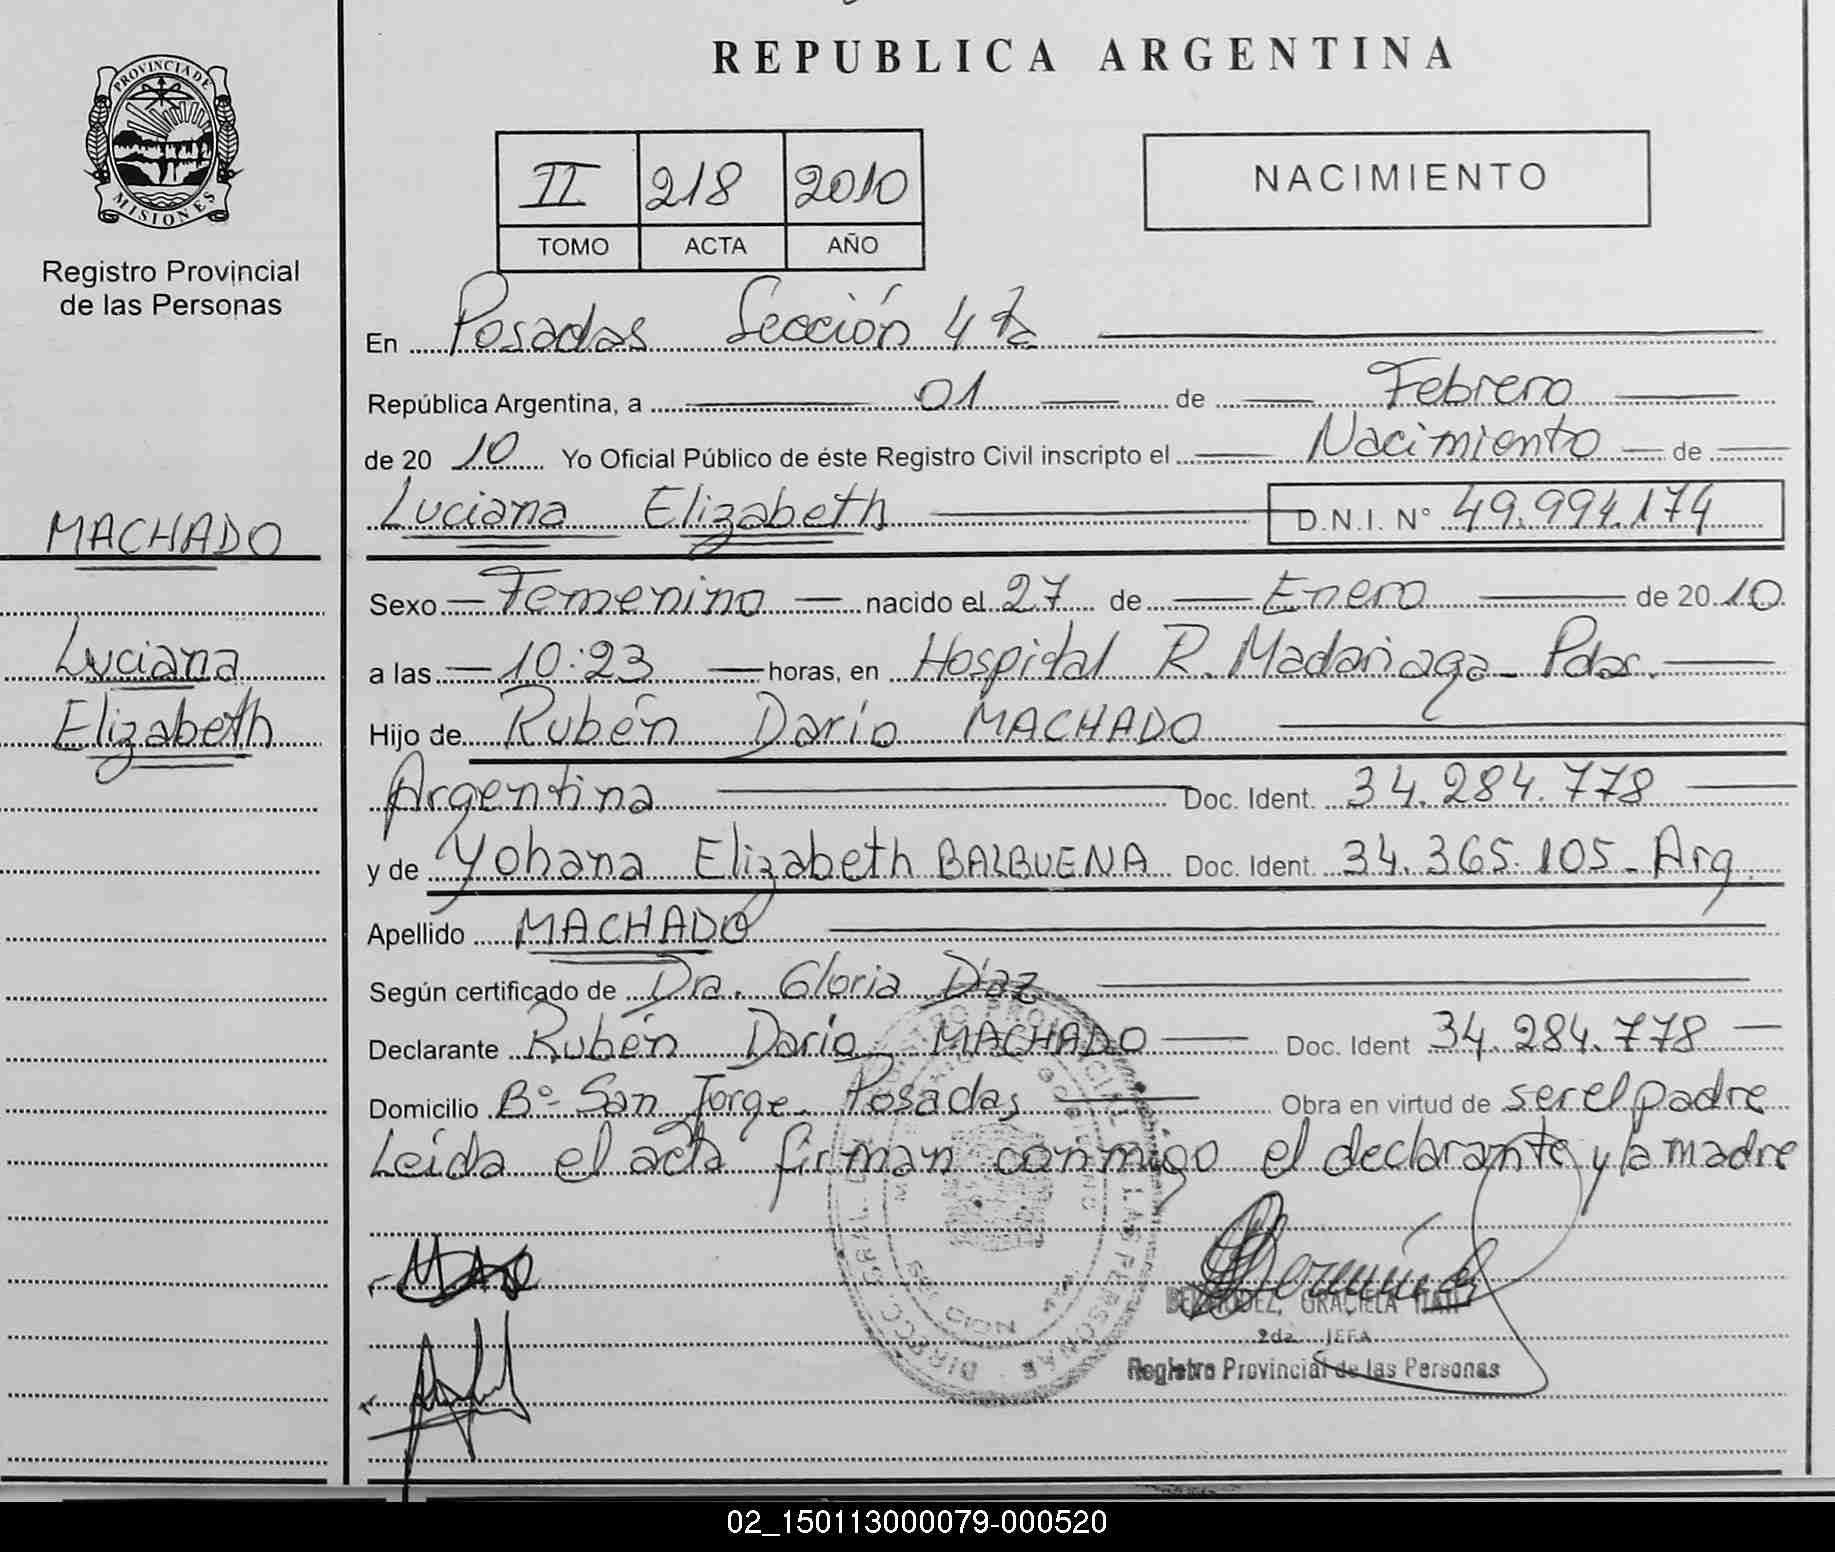 REPUBLICA ARGENTINA
PROVINCIA DE
MISIONES
Registro Provincial
de las Personas
II 218 2010
TOMO ACTA AÑO
NACIMIENTO
En Posadas Sección 4ta
República Argentina, a 01 de Febrero
de 2010 Yo Oficial Público de éste Registro Civil inscripto el Nacimiento de
Luciana Elizabeth D.N.I. N° 49.994.174
MACHADO
Luciana
Elizabeth
Sexo Femenino nacido el 27 de Enero de 2010
a las 10:23 horas, en Hospital R. Madariaga - Pdas.
Hijo de Rubén Darío MACHADO
Argentina Doc. Ident. 34.284.778
y de Yohana Elizabeth BALBUENA Doc. Ident. 34.365.105 - Arg.
Apellido MACHADO
Según certificado de Dra. Gloria Díaz
Declarante Rubén Darío MACHADO Doc. Ident 34.284.778
Domicilio B°- San Jorge. Posadas Obra en virtud de ser el padre
Leída el acta firman conmigo el declarante y la madre
BERMUDEZ, GRACIELA ITATI
2da. JEFA
Registro Provincial de las Personas
02_150113000079-000520